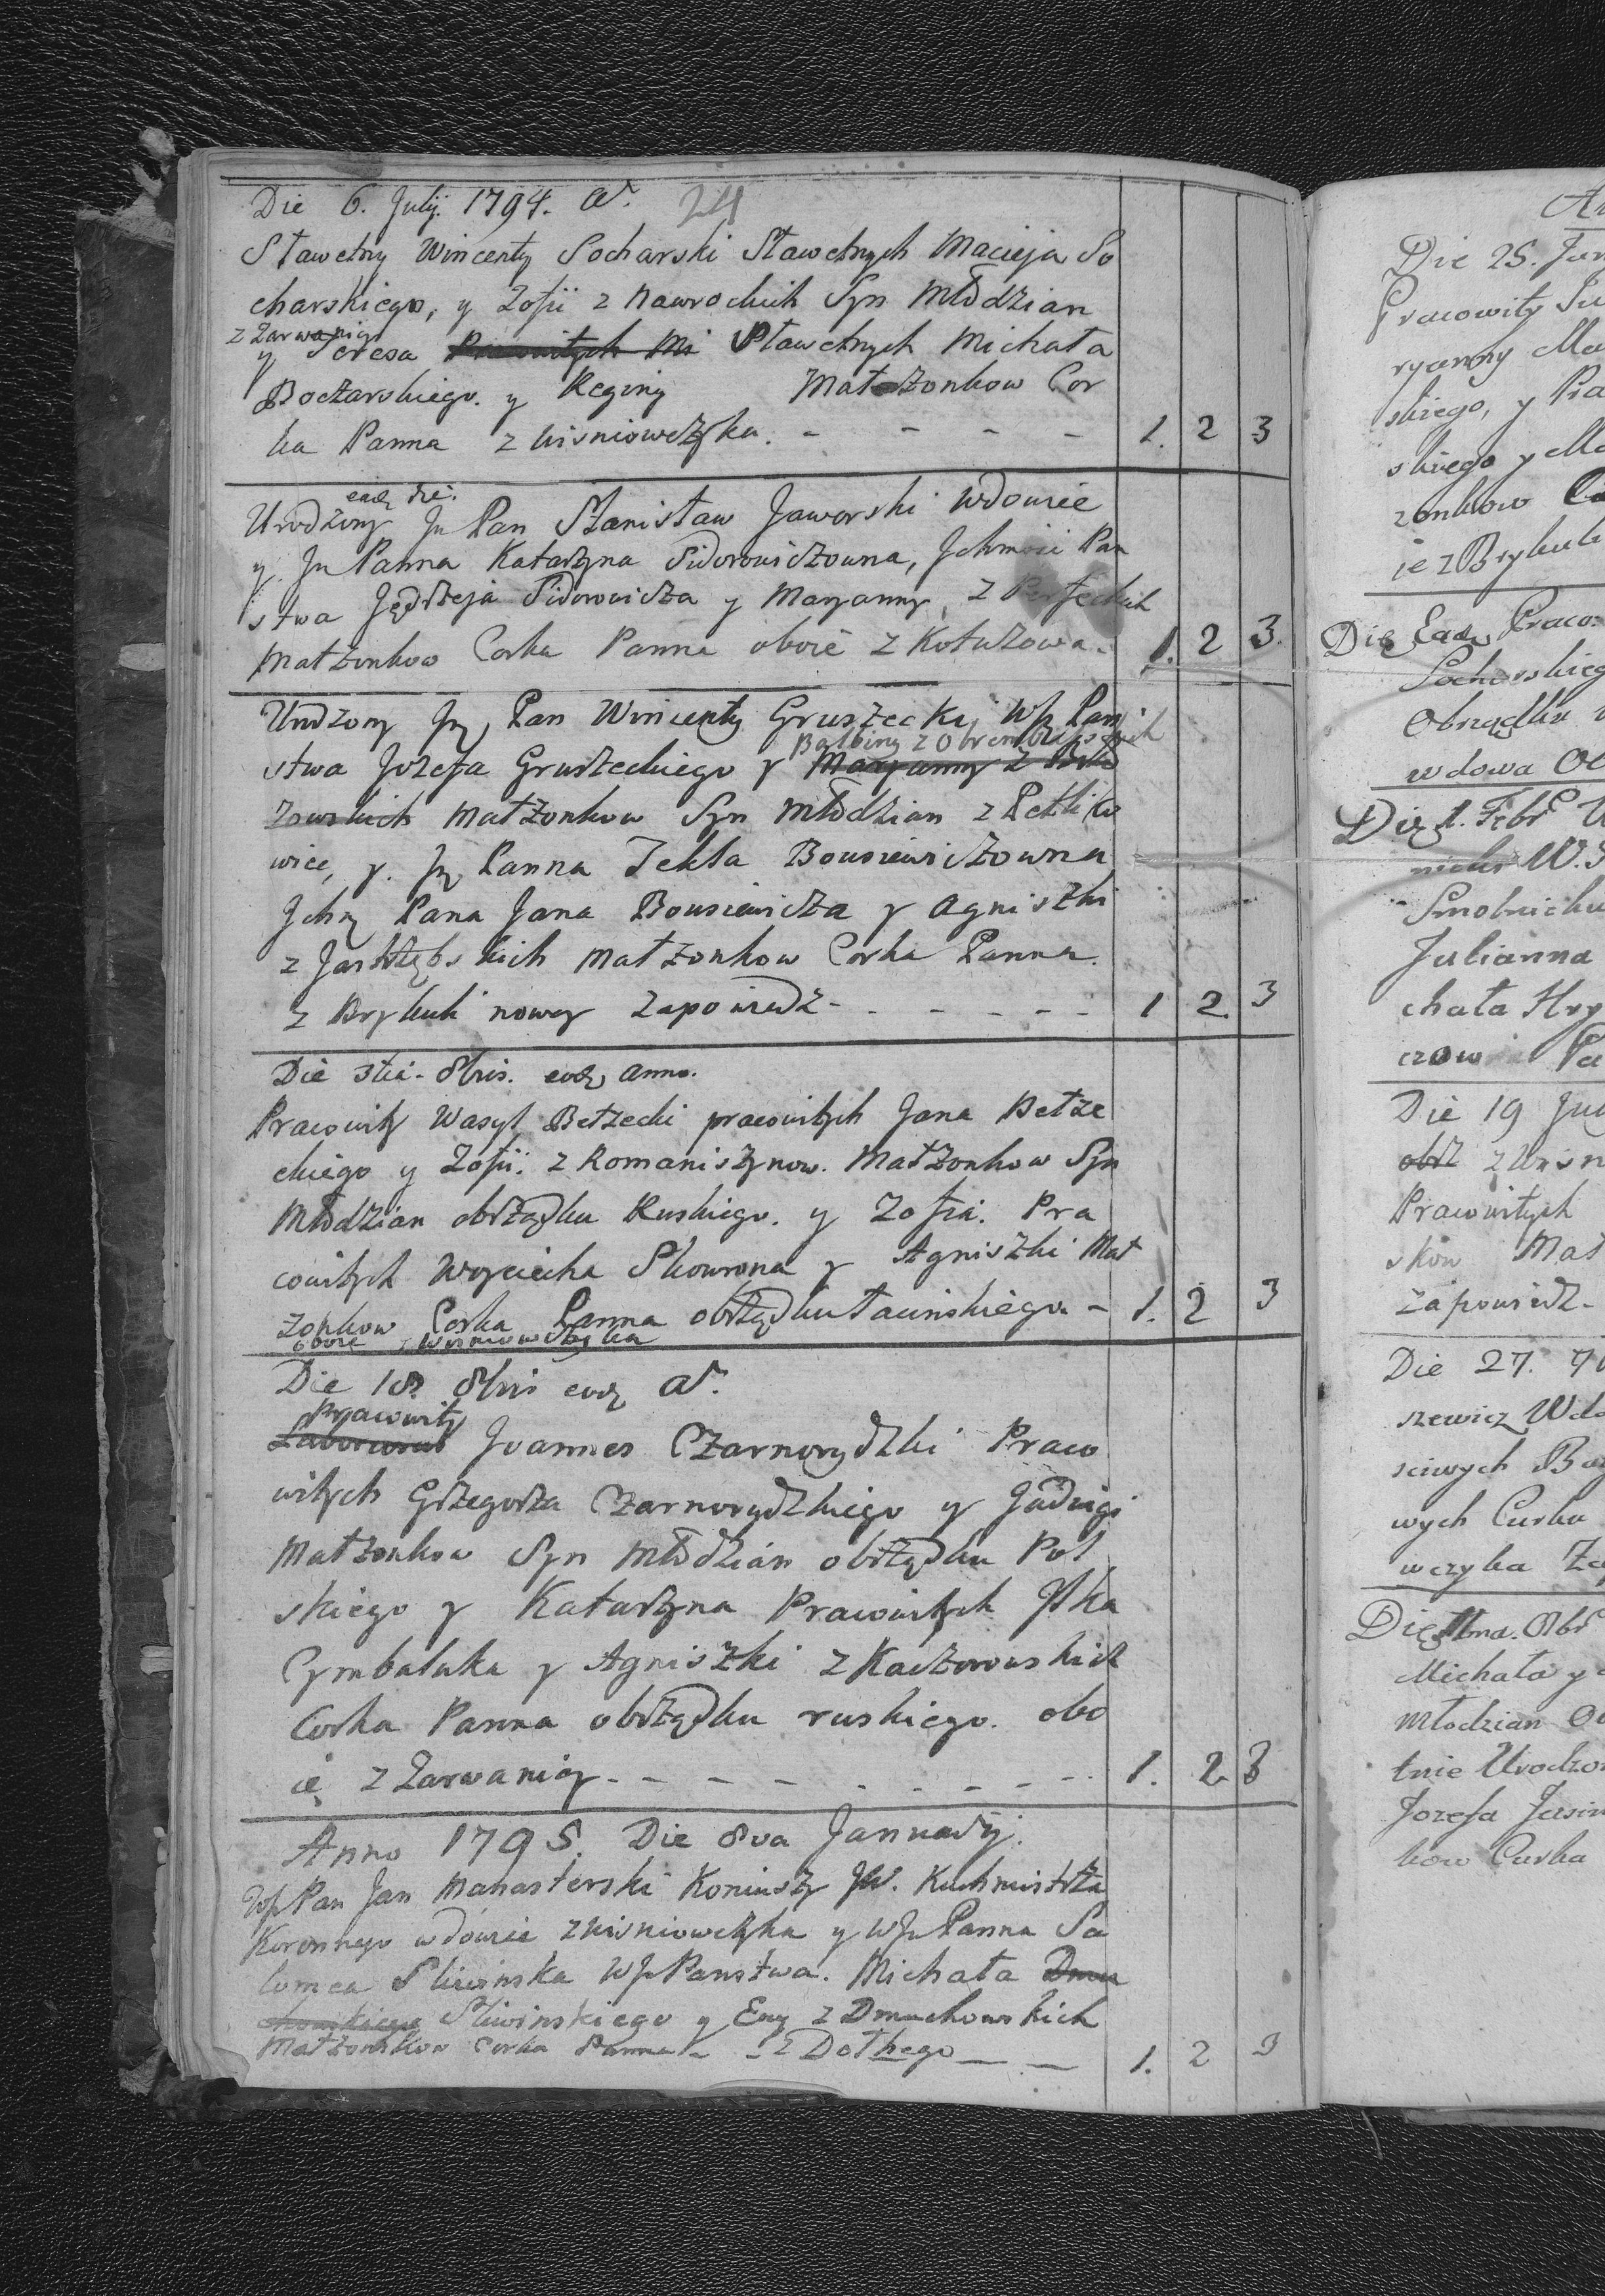 Die 6. Julij. 1794. A°. 24
Sławetny Wincenty Socharski Sławetnych Macieja So
charskiego, y Zofii z Nawrockich Syn Młodzian
z Zarwanicy
y Teresa Pracowitych Mi Sławetnych Michała
Boczarskiego. y Reginy Małżonkow Cor
ka Panna z Wisniowczyka. - - - - 1. 2 3
eadem die.
Urodzony Jm Pan Stanisław Jaworski Wdowiec
y Jm Panna Katarzyna Sidorowiczowna, Jchmosci Pan
stwa Jędrzeja Sidorowicza y Maryanny, z
Małżonkow Corka Panna oboie z Kotuzowa. 1. 2 3.
Urodzony Jm Pan Wincenty Gruszecki, Wp Pan
Balbiny z
stwa Jozefa Gruszeckiego y Maryanny z
zowskich Małżonkow Syn Młodzian z Petliko
wiec, y. Jm Panna Tekla Bousiewiczowna
Jchm Pana Jana Bousiewicza y Agniszki
z Jastrzębskich Małżonkow Corka Panna.
z Brykuli nowey zapowiedz - - - - - - 1 2. 3
Die 3tia. 8bris. eod anno.
Pracowity Wasyl Bełzecki pracowitych Jana Bełze
ckiego y Zofii. z Romaniszynow. Małżonkow Syn
Młodzian obrządku Ruskiego. y Zofia. Pra
cowitych Woyciecha Skowrona y Agniszki Mał
żonkow Corka Panna obrządku łacinskiego - 1. 2 3
oboie z Wisniowczyka
Die 18. 8bris eod A°.
Pracowity
Laboriosus Joannes Czarnorydzki Praco
witych Grzegorza Czarnorydzkiego y Jadwigi
Małżonkow Syn Młodzian obrządku Pol
skiego y Katarzyna Pracowitych Jłka
Cymbaluka y Agniszki z Kaczorowskich
Corka Panna obrządku ruskiego. obo
ie z Zarwanicy - - - - - - - - 1. 2 3
Anno 1795. Die 8va Januarij.
Wp Pan Jan Manasterski Koniuszy JW. Kuchmistrza
Koronnego wdowiec z Wisniowczyka y WJm Panna Sa
lomea Sliwinska WJm Panstwa. Michała Dmu
chowskiego Sliwinskiego y Ewy z Dmuchowskich
Małżonkow Corka Panna - - z Dołhego - - 1. 2 3
Die 25.
Pracowity
ryanny
skiego, y
skiego y
zonkow
ie z Brykuli
Die Eadem Praco.
Socharskieg
Obrządku
wdowa
Die 1. Febr
Smolnicku
Julianna
chała Hry
Die 19
obrz z Wisn
Pracowitych
skow Mał
zapowiedz -
Die 27.
szewicz Wdo
sciwych
wych Curka
wczyka
Die
Michała y
Młodzian
tnie Urodzo
Jozefa Jasin
kow Curka